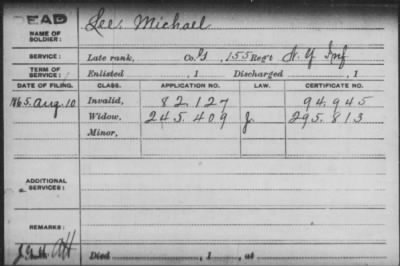 DEAD
NAME OF SOLDIER: Lee, Michael
SERVICE: Late rank, Co. G, 155 Reg't N. Y. Inf
TERM OF SERVICE: Enlisted , 1 Discharged , 1
DATE OF FILING. CLASS. APPLICATION NO. LAW. CERTIFICATE NO.
1865. Aug. 10 Invalid, 82.127 94.945
Widow, 245.409 J. 295.813
Minor,
ADDITIONAL SERVICES:
REMARKS:
Died , 1 , at